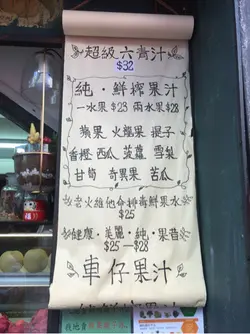 超級六青汁
$32
純·鮮搾果汁
一水果 $23 兩水果 $28
蘋果 火龍果 提子
香橙 西瓜 菠蘿 雪梨
甘筍 奇異果 苦瓜
老火維他命排毒鮮果水
$25
健康·美麗·純·果昔
$25—$28
車仔果汁